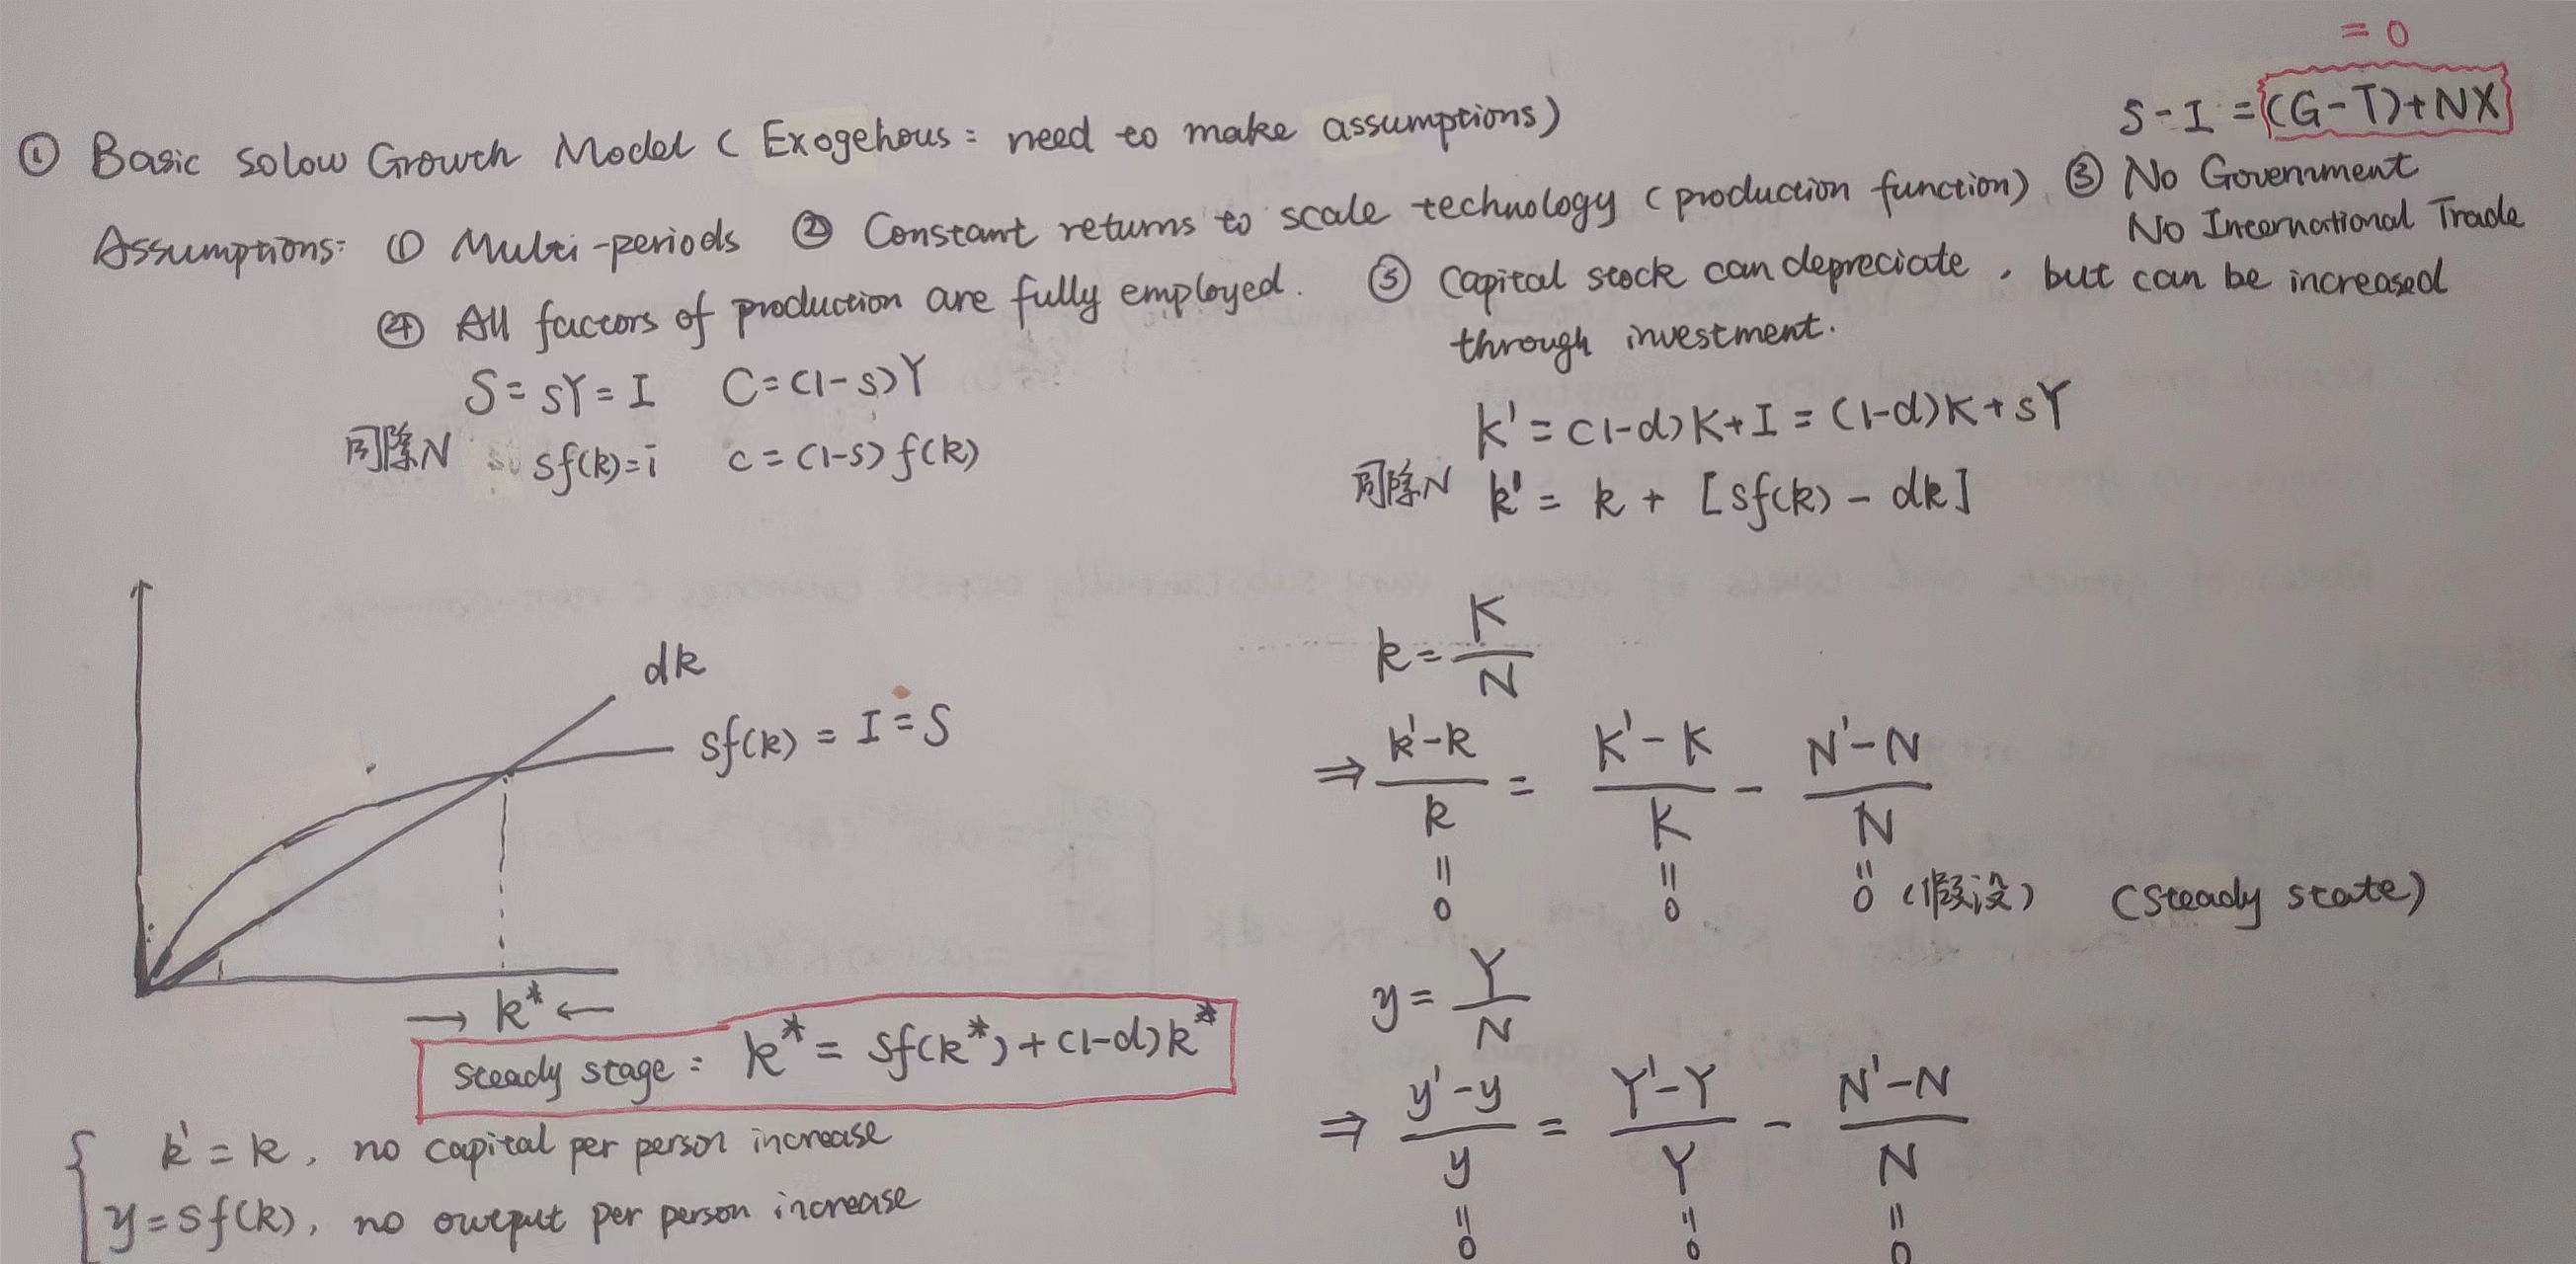 = 0
S - I = (G-T)+NX
① Basic Solow Growth Model ( Exogehous : need to make assumptions)
Assumptions: ① Multi-periods ② Constant returns to scale technology (production function) ③ No Government
No International Trade
④ All factors of production are fully employed. ⑤ Capital stock can depreciate , but can be increased
through investment.
S = sY = I C = (1-s)Y
同除N sf(k)=i c = (1-s) f(k)
K' = (1-d) K + I = (1-d)K + sY
同除N k' = k + [sf(k) - dk]
dk
sf(k) = I = S
→ k* ←
Steady stage : k* = sf(k*) + (1-d)k*
k' = k , no capital per person increase
y = sf(k) , no output per person increase
k = K/N
⇒ k'-k/k = K'-K/K - N'-N/N
= 0 = 0 = 0 (假设) (Steady state)
y = Y/N
⇒ y'-y/y = Y'-Y/Y - N'-N/N
= 0 = 0 = 0